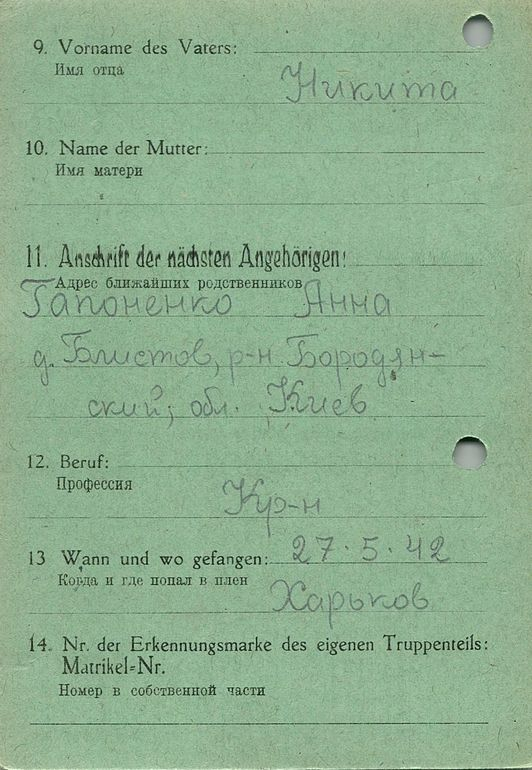 9. Vorname des Vaters:
Имя отца
Никита
10. Name der Mutter:
Имя матери
11. Anschrift der nächsten Angehörigen:
Адрес ближайших родственников
Гапоненко Анна
д. Блистов, р-н Бородян-
ский, обл. Киев
12. Beruf:
Профессия
Кр-н
13 Wann und wo gefangen: 27.5.42
Когда и где попал в плен
Харьков
14. Nr. der Erkennungsmarke des eigenen Truppenteils:
Matrikel-Nr.
Номер в собственной части